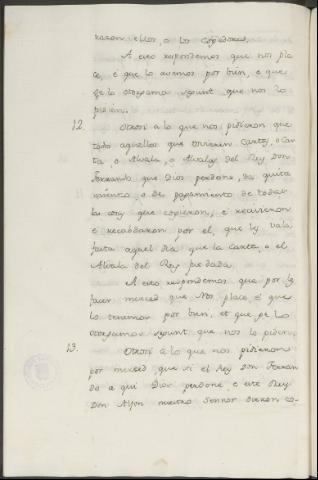 razon ellos o los cogedores.
A esto respondemos que nos pla
ce, é que lo avemos por bien, e que
ge lo otorgamos segunt que nos lo
pidien.
12. Otrosi à lo que nos pidieron que
todo aquellos que tovieren Cartas, o Car
ta, o Alvala, o Alvalas del Rey Don
Ferrando que Dios perdone, de quita
miento, o de pagamiento de todas
las cosas que cogieron, e recivieron
e recabdaron por el, que les vala
fasta aquel dia que la Carta, o el
Alvala del Rey fue dada.
A esto respondemos que por les
facer merced que Nos place, é que
lo tenemos por bien, et que ge lo
otorgamos segunt que nos lo piden.
13. Otrosi à lo que nos pidieron
por merced, que si el Rey Don Ferran
do a qui Dios perdone, e este Rey
Don Alfon nuestro Sennor dieron ca-